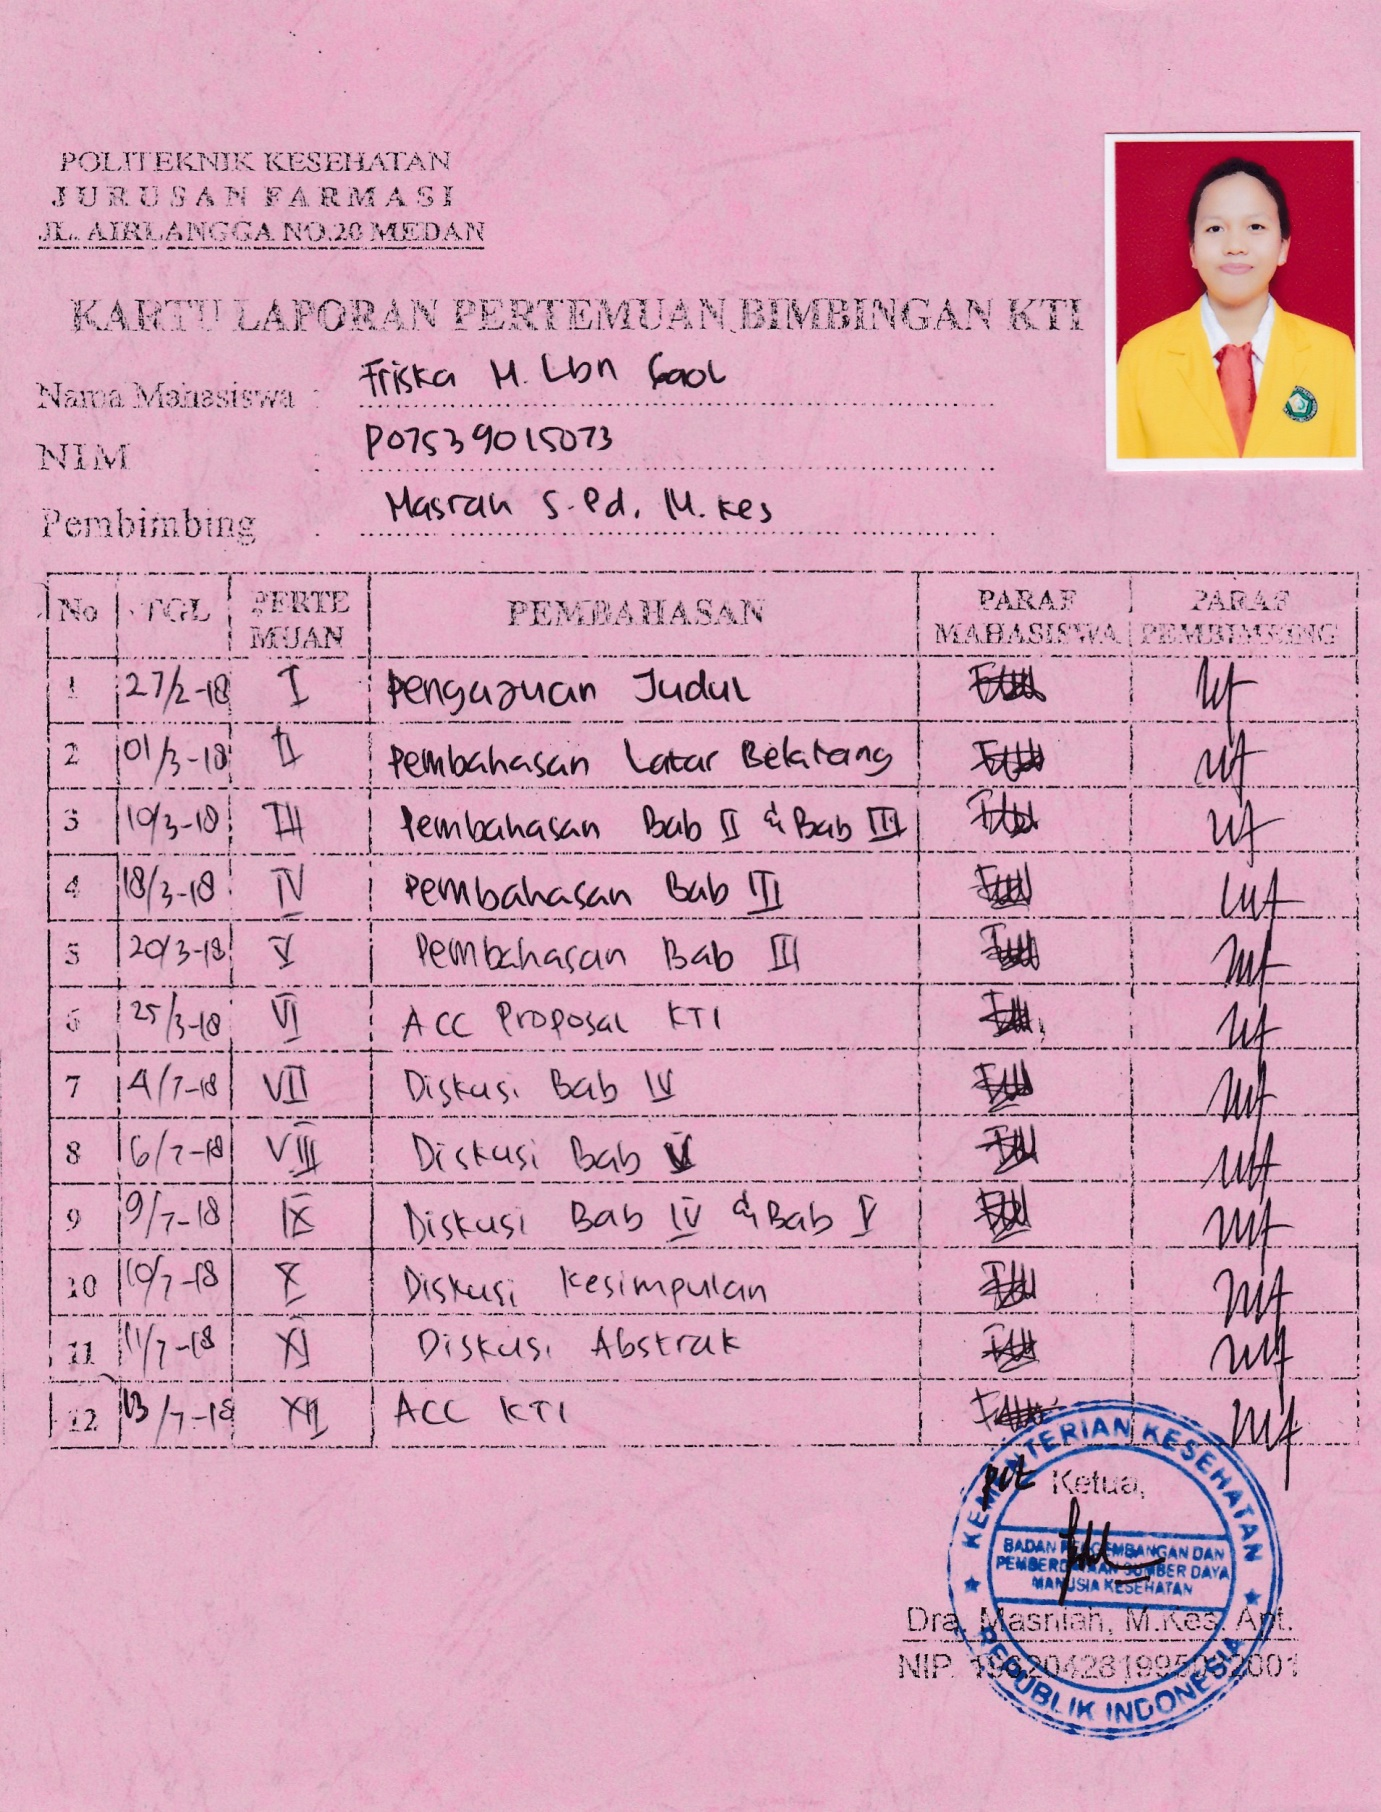 POLITEKNIK KESEHATAN
JURUSAN FARMASI
JL. AIRLANGGA NO.20 MEDAN
KARTU LAPORAN PERTEMUAN BIMBINGAN KTI
Nama Mahasiswa : Friska M. Lbn Gaol
NIM : P07539015073
Pembimbing : Masrah S.Pd, M.Kes
No TGL PERTEMUAN PEMBAHASAN PARAF MAHASISWA PARAF PEMBIMBING
1 27/2-18 I Pengajuan Judul
2 01/3-18 II Pembahasan Latar Belakang
3 10/3-18 III Pembahasan Bab II & Bab III
4 18/3-18 IV Pembahasan Bab III
5 20/3-18 V Pembahasan Bab III
6 25/3-18 VI ACC Proposal KTI
7 4/7-18 VII Diskusi Bab IV
8 6/7-18 VIII Diskusi Bab V
9 9/7-18 IX Diskusi Bab IV & Bab V
10 10/7-18 X Diskusi Kesimpulan
11 11/7-18 XI Diskusi Abstrak
12 13/7-18 XII ACC KTI
Ketua,
KEMENTERIAN KESEHATAN
BADAN PENGEMBANGAN DAN
PEMBERDAYAAN SUMBER DAYA
MANUSIA KESEHATAN
REPUBLIK INDONESIA
Dra. Masniah, M.Kes. Apt.
NIP. 196204281995032001